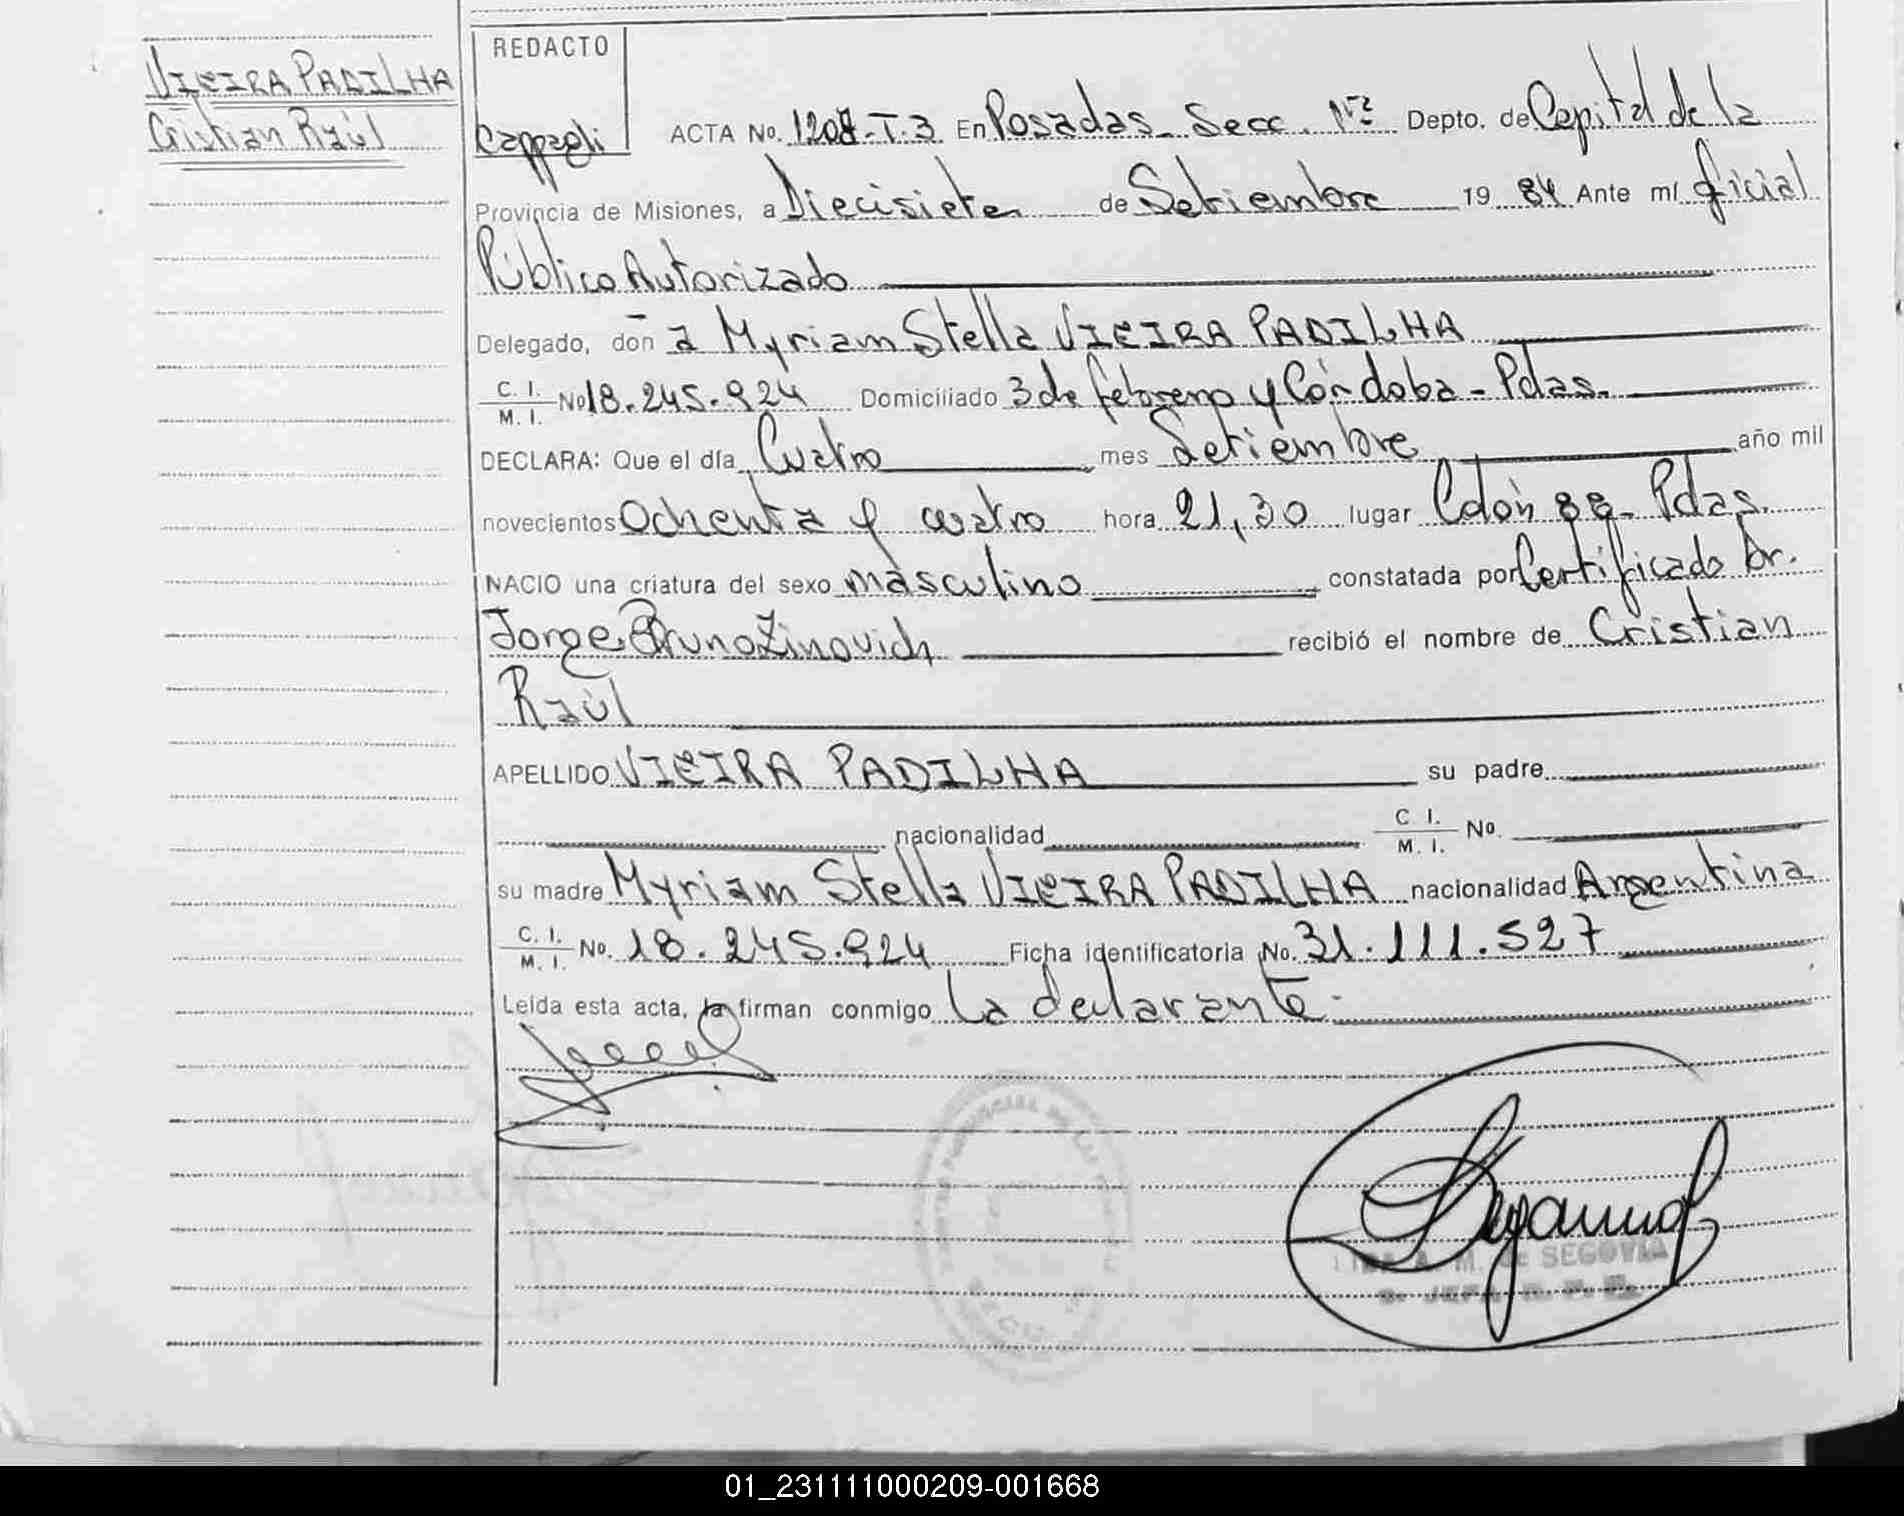 VIEIRA PADILHA
Cristian Raúl
REDACTO
Cappagli
ACTA No. 1208-T.3 En Posadas- Secc. 1ra Depto. de Capital de la
Provincia de Misiones, a Diecisiete de Setiembre 19 84 Ante mí oficial
Público Autorizado
Delegado, don a Myriam Stella VIEIRA PADILHA
C. I.
M. I. No 18.245.924 Domiciliado 3 de febrero y Córdoba - Pdas.
DECLARA: Que el día Cuatro mes Setiembre año mil
novecientos Ochenta y cuatro hora 21,30 lugar Colón 88- Pdas.
NACIO una criatura del sexo masculino constatada por Certificado Dr.
Jorge Bruno Zinovich recibió el nombre de Cristian
Raúl
APELLIDO VIEIRA PADILHA su padre
nacionalidad C. I.
M. I. No.
su madre Myriam Stella VIEIRA PADILHA nacionalidad Argentina
C. I.
M. I. No. 18.245.924 Ficha identificatoria No. 31.111.527
Leída esta acta, la firman conmigo La declarante.
A. M. de SEGOVIA
01_231111000209-001668